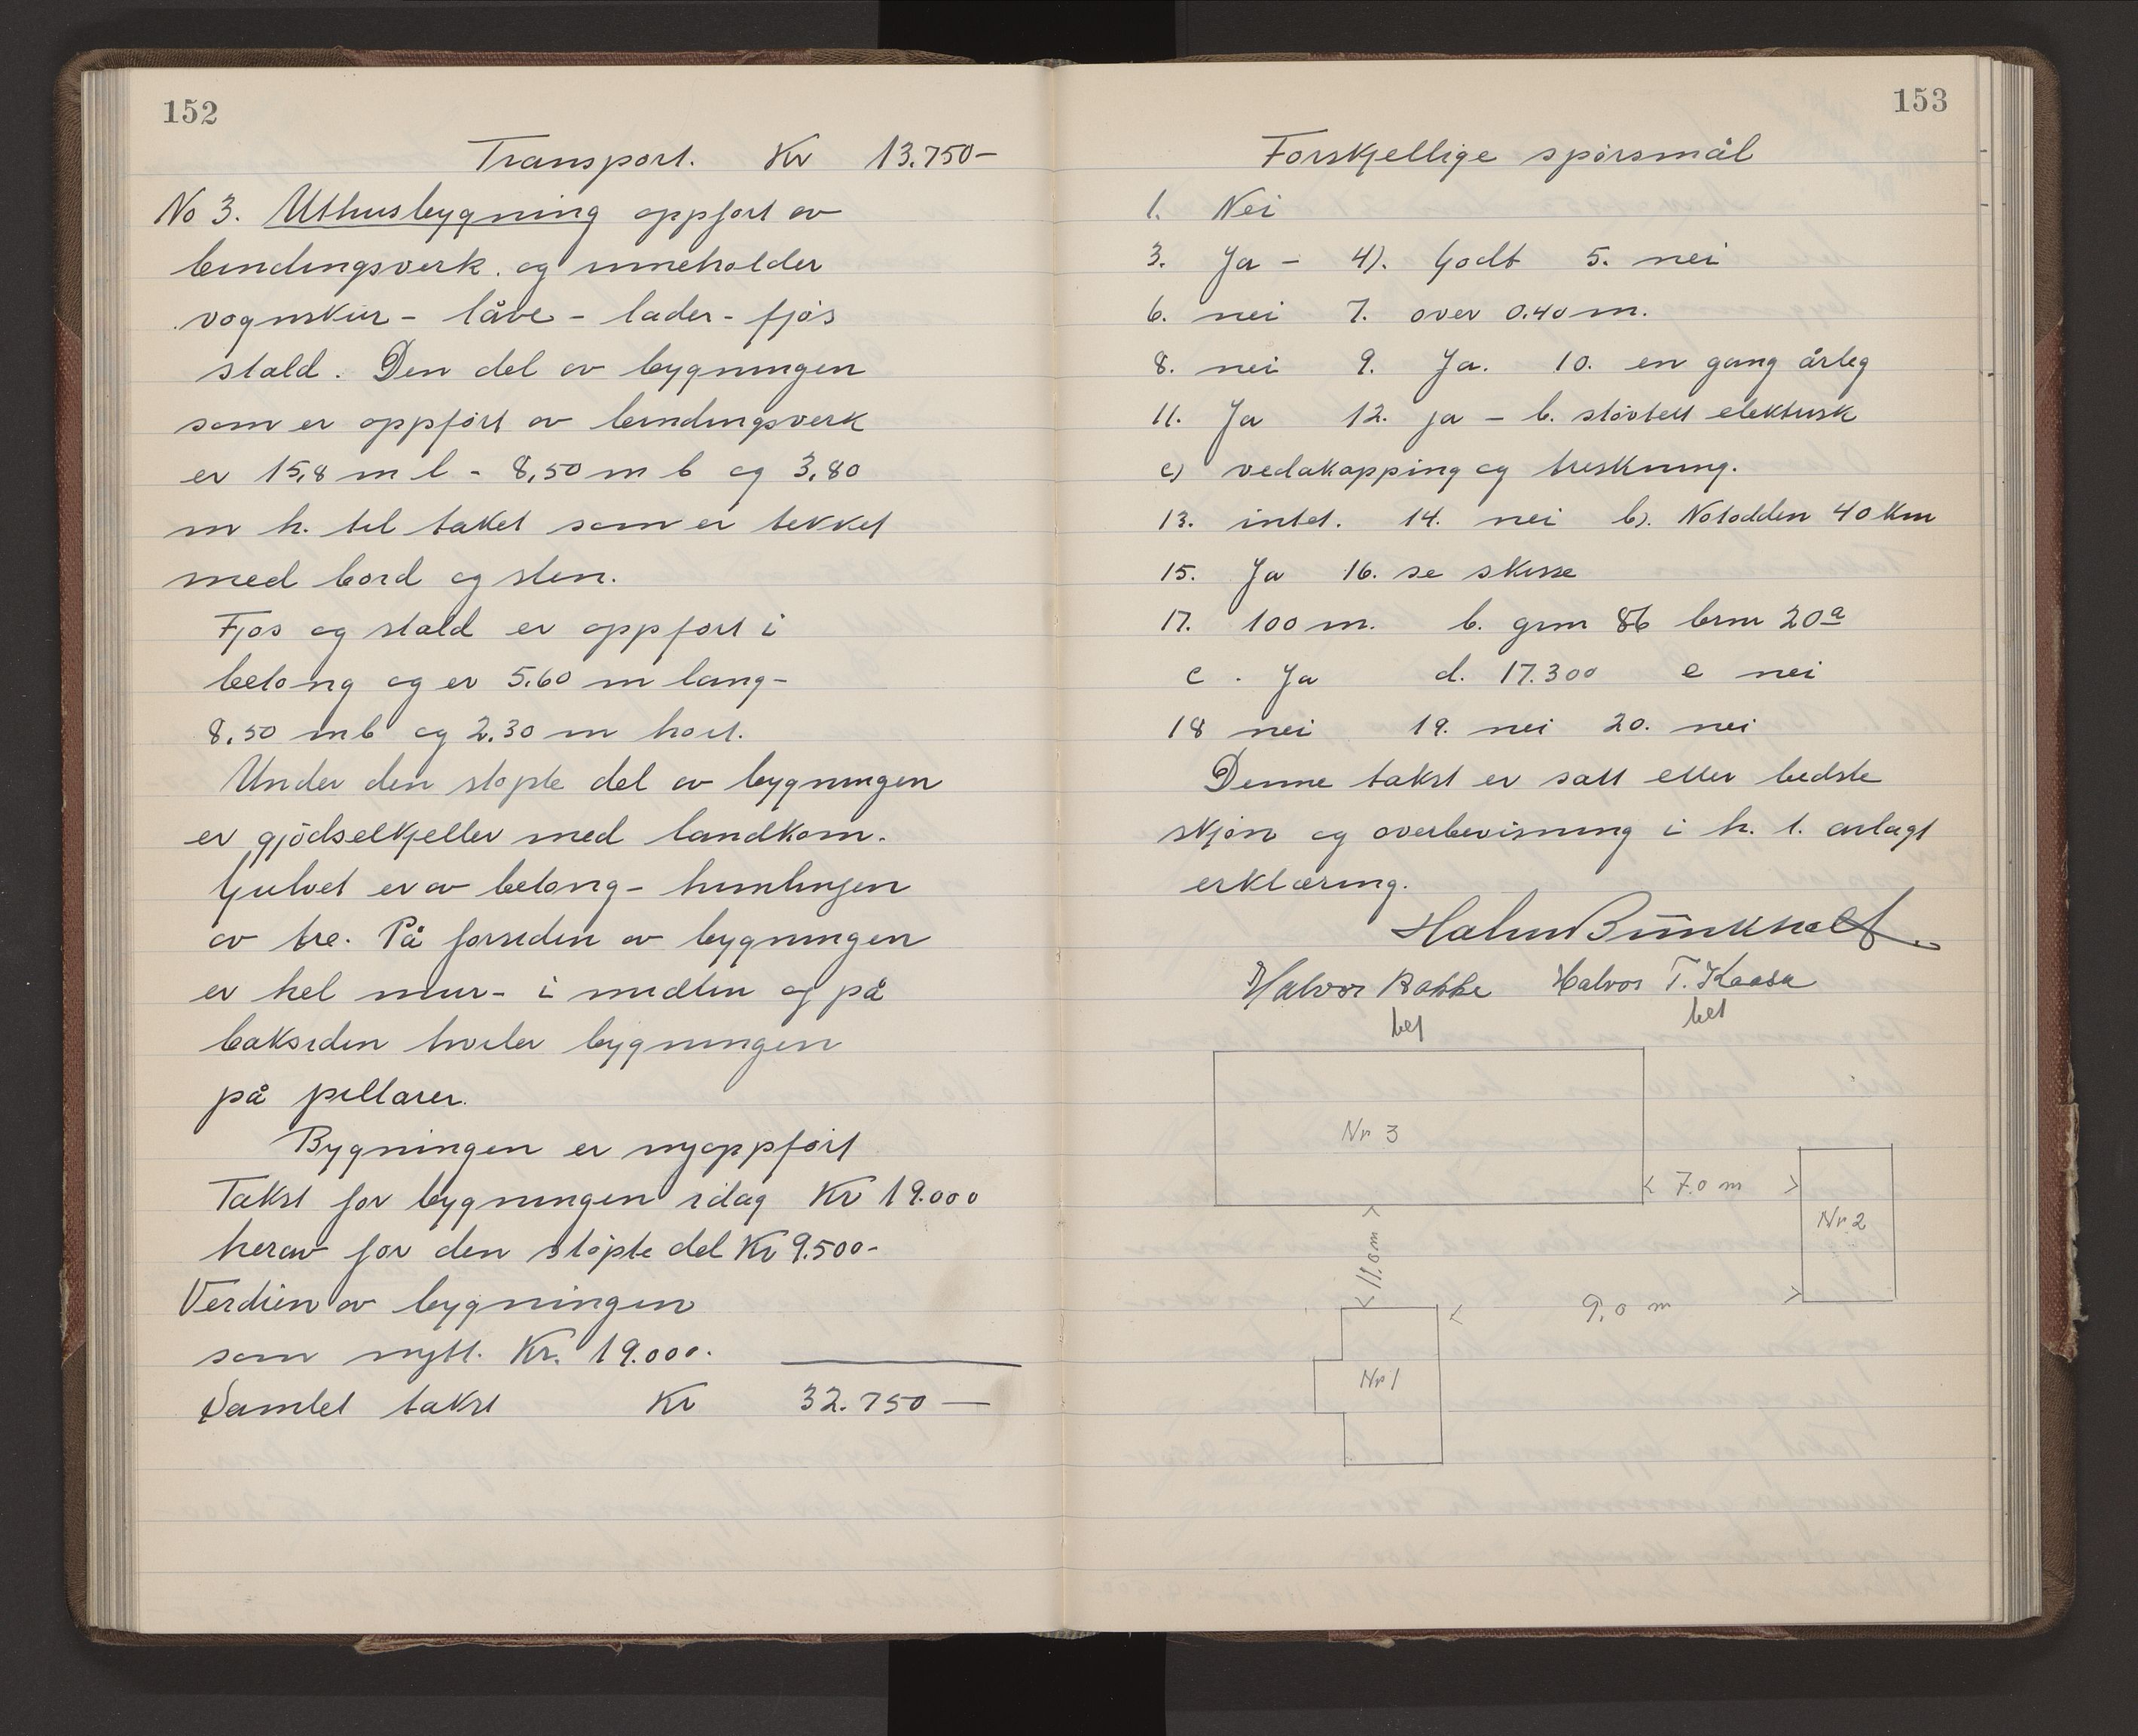 152
Transport. Kr 13.750-
No 3. Uthusbygning oppført av
bindingsverk. og inneholder
vognskur - låve - lader - fjøs
stald. Den del av bygningen
som er oppført av bindingsverk
er 15,8 m l - 8,50 m b og 3,80
m h. til taket som er tekket
med bord og sten.
Fjøs og stald er oppført i
betong og er 5.60 m lang-
8.50 m b og 2.30 m høit.
Under den støpte del av bygningen
er gjødselkjeller med landkom.
Gulvet er av betong - himlingen
av tre. På forsiden av bygningen
er hel mur - i midten og på
baksiden hviler bygningen
på pillarer.
Bygningen er nyoppført
Takst for bygningen idag Kr 19.000
herav for den støpte del Kr 9.500-
Verdien av bygningen
som nytt. Kr. 19.000.
Samlet takst Kr 32.750 —
153
Forskjellige spørsmål
1. Nei
3. Ja - 4). Godt 5. nei
6. nei 7. over 0.40 m.
8. nei 9. Ja. 10. en gang årleg
11. Ja 12. ja - b. støvtett elektrisk
c) vedakapping og treskning.
13. intet. 14. nei b). Notodden 40 Km
15. Ja 16. se skisse
17. 100 m. b. grnr 86 brnr 20a
c. Ja d. 17.300 e nei
18 nei 19. nei 20. nei
Denne takst er satt etter bedste
skjøn og overbevisning i h. t. avlagt
erklæring.
Halvor Bakke Halvor T. Kaasa
Nr 3
7.0 m
Nr 2
11.0 m
9,0 m
Nr 1